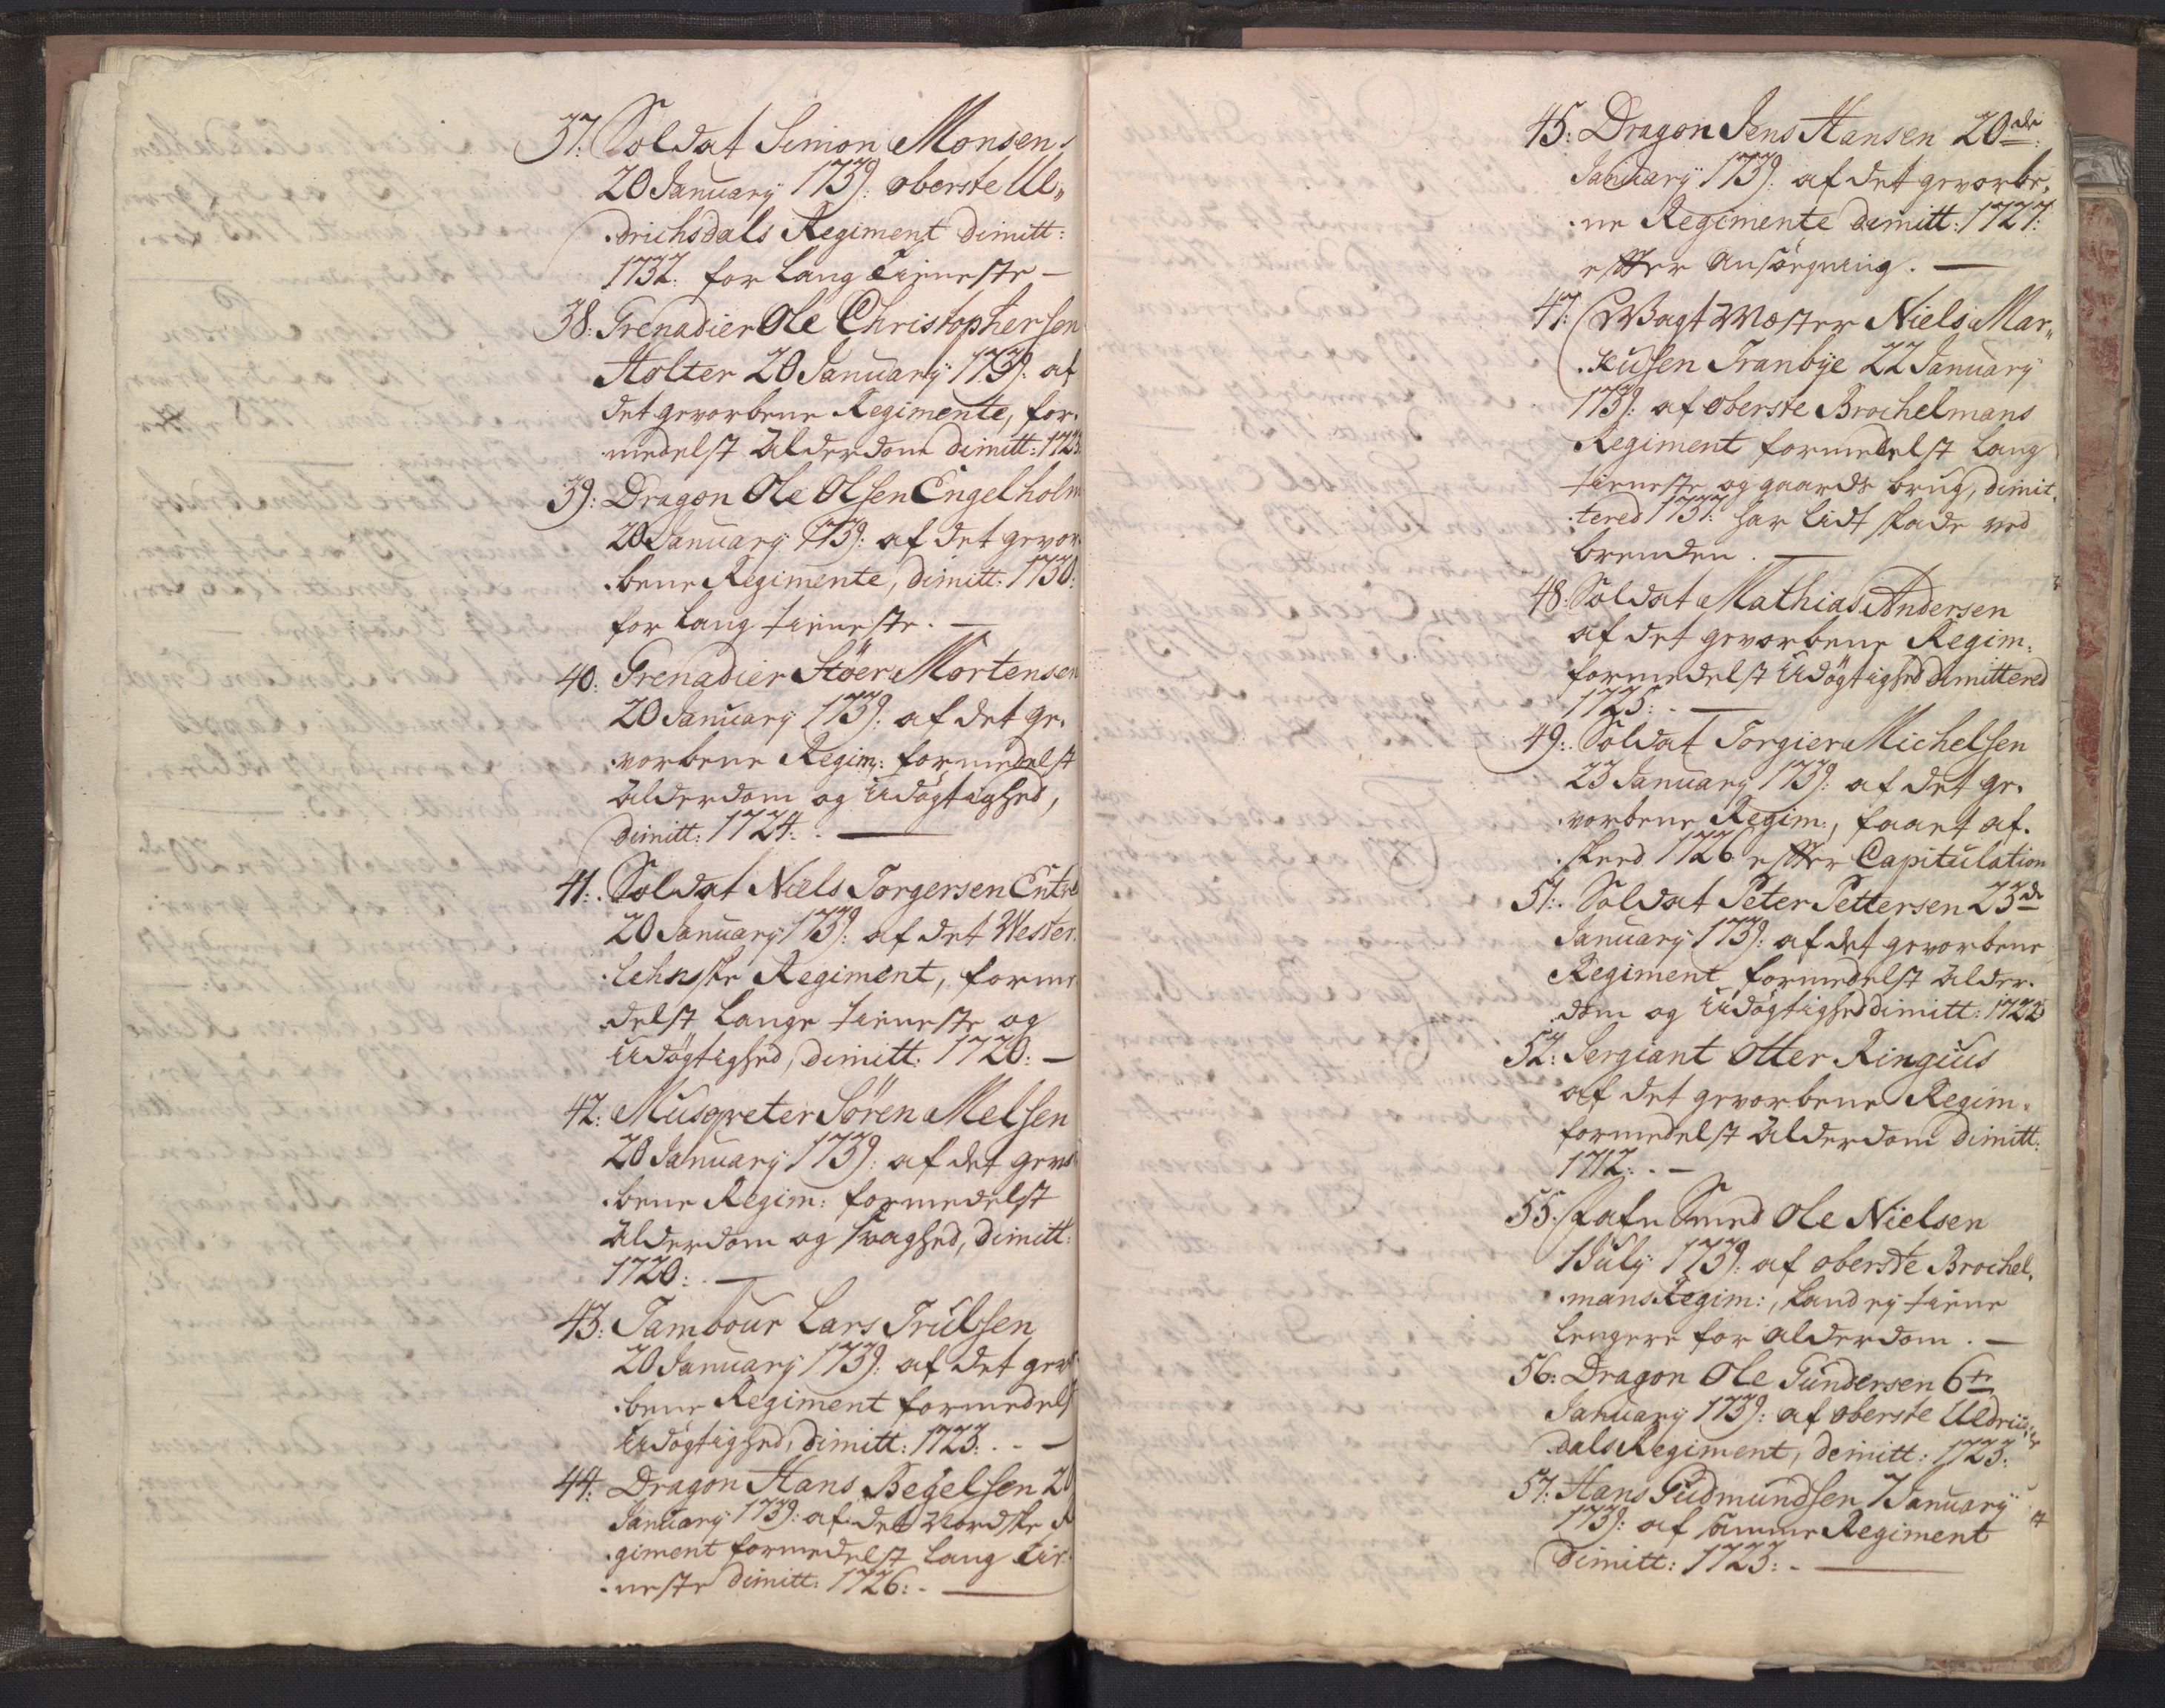 37: Soldat Simon Monsen
20 January 1739: oberste Ul„
drichsdals Regiment dimitt:
1732. for lang tieneste —
38: Grenadier Ole Christophersen
Holter 20 January 1739: af
det gevorbene Regimente, for.
medelst Alderdom dimitt: 1723
39: Dragon Ole Olsen Engelholm
20 January 1739: af det gevor.
.bene Regimente, dimitt: 1730:
for lang tieneste. —
40: Grenadier Stöer Mortensen
20 January 1739: af det ge.
.vorbene Regim: formedelst
Alderdom og Udögtighed,
dimitt: 1724: . —
41: Soldat Niels Torgersen
20 January 1739: af det Wester.
.lehnske Regiment, forme
.delst lange tieneste og
Udögtighed, dimitt: 1720: —
42: Musqveter Sören Melsen
20 January 1739: af det gevor
.bene Regim: formedelst
Alderdom og svaghed, dimitt:
1720: . —
43: Tambour Lars Trulsen
20 January 1739: af det gevor
.bene Regiment formedelst
Udögtighed, dimitt: 1723: . . —
44: Dragon Hans Begelsen 20
January 1739: af det Nordske Re
.giment formedelst lang tie.
.neste dimitt: 1726: . —
45: Dragon Jens Hansen 20de
January 1739: af det gevorbe.
.ne Regimente dimitt: 1727:
efter Ansögning. —
47: Wagtmester Niels Mar„
.kusen Tranbye 22 January
1739: af oberste Brochelmans
Regiment formedelst lang
tieneste og gaards brug, dimit.
.tered 1737: har lidt skade ved
branden. —
48: Soldat Mathias Andersen
af det gevorbene Regim:
formedelst Udögtighed dimittered
1725: . —
49: Soldat Torgier Michelsen
23 January 1739: af det ge.
.vorbene Regim:, faaet af.
.skeed 1726 efter Capitulation
51: Soldat Peter Pettersen 23de
January 1739: af det gevorbene
Regiment formedelst Alder.
.dom og Udögtighed dimitt: 1722
52: Sergiant Otter Ringius
af det gevorbene Regim.
formedelst Alderdom dimitt:
1712: . —
55: Smed Ole Nielsen
1 July 1739: af oberste Brochel.
.mans Regim:, kand ey tiene
lengere for alderdom. —
56: Dragon Ole Gundersen 6te
January 1739: af oberste Uldrics
.dals Regiment, dimitt: 1723:
57: Hans Gudmundsen 7 January
1739: af samme Regiment
dimitt: 1723: . —